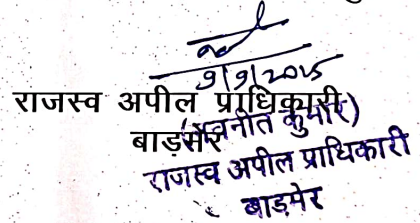 9/9/2015
राजस्व अपील प्राधिकारी
बाड़मेर
(नवनीत कुमार)
राजस्व अपील प्राधिकारी
बाड़मेर